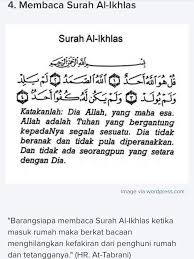 4. Membaca Surah Al-Ikhlas
Surah Al-Ikhlas
بسم الله الرحمن الرحيم
قُلْ هُوَ اللَّهُ أَحَدٌ ۝١ اللَّهُ الصَّمَدُ ۝٢ لَمْ يَلِدْ
وَلَمْ يُولَدْ ۝٣ وَلَمْ يَكُن لَّهُ كُفُوًا أَحَدٌ ۝٤
Katakanlah: Dia Allah, yang maha esa.
Allah adalah Tuhan yang bergantung
kepadaNya segala sesuatu. Dia tidak
beranak dan tidak pula diperanakkan.
Dan tidak ada seorangpun yang setara
dengan Dia.
Image via wordpress.com
"Barangsiapa membaca Surah Al-Ikhlas ketika
masuk rumah maka berkat bacaan
menghilangkan kefakiran dari penghuni rumah
dan tetangganya." (HR. At-Tabrani)